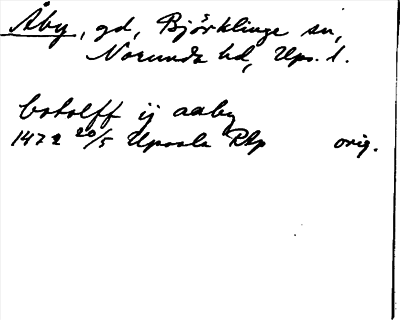 Åby, gd, Björklinge sn,
Norunda hd, Ups. l.
botolff ij aaby
1472 20/5 Upsala Rbp orig.